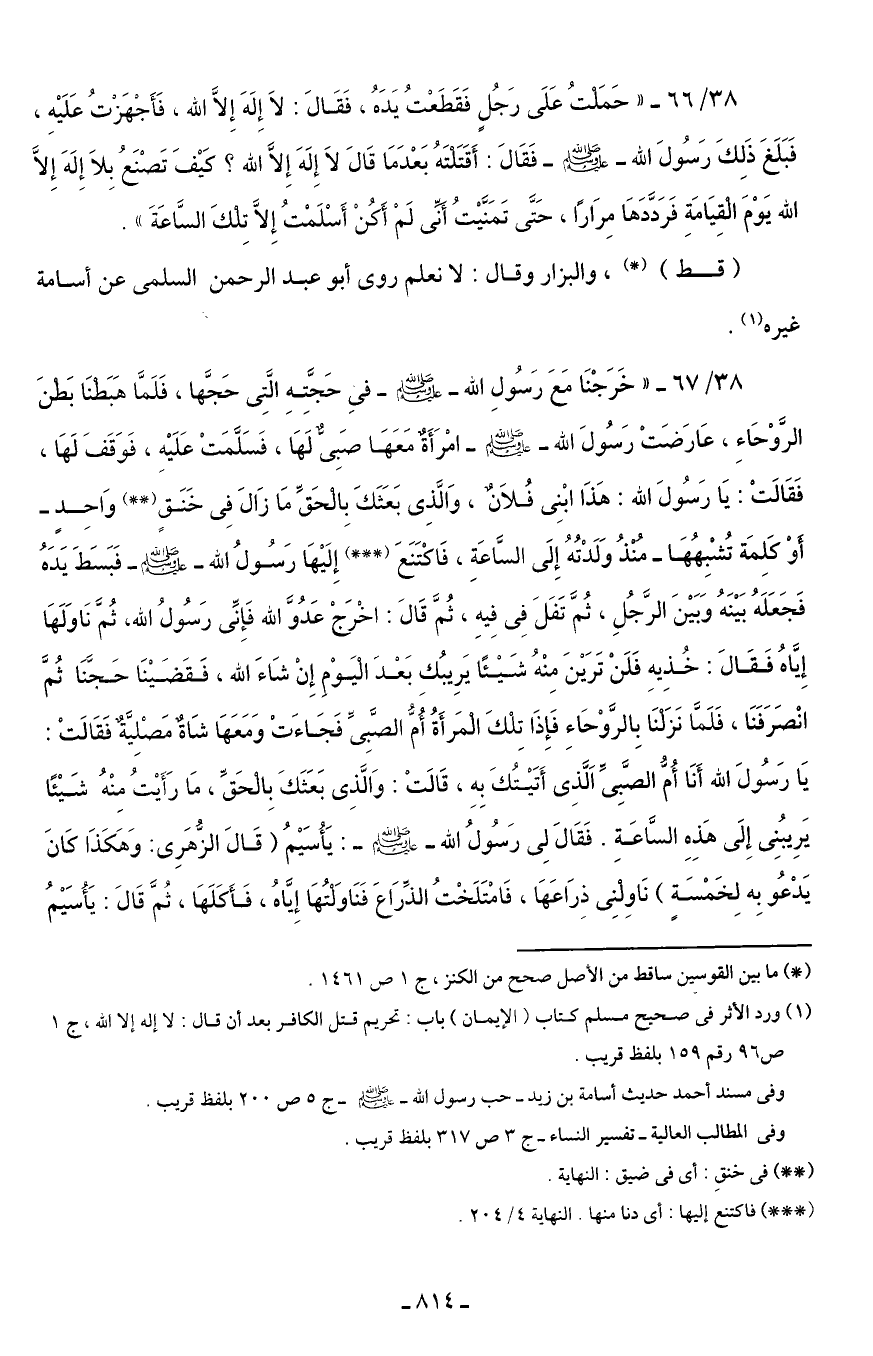 ٦٦/٣٨ ـ « حَمَلْتُ عَلَى رَجُلٍ فَقَطَعْتُ يَدَهُ ، فَقَالَ : لاَ إِلَهَ إِلاَّ الله ، فَأَجْهَزْتُ عَلَيْهِ ،
فَبَلَغَ ذَلِكَ رَسُولَ الله ـ ﷺ ـ فَقَالَ : أَقَتَلْتَهُ بَعْدَمَا قَالَ لاَ إِلَهَ إِلاَّ الله ؟ كَيْفَ تَصْنَعُ بِلاَ إِلَهَ إِلاَّ
الله يَوْمَ الْقِيَامَةِ فَرَدَّدَهَا مِرَارًا ، حَتَّى تَمَنَّيْتُ أَنِّى لَمْ أَكُنْ أَسْلَمْتُ إِلاَّ تِلْكَ السَّاعَةَ » .
( قــط ) (*) ، والبزار وقال : لا نعلم روى أبو عبد الرحمن السلمى عن أسامة
غيره(١) .
٦٧/٣٨ ـ « خَرَجْنَا مَعَ رَسُولِ الله ـ ﷺ ـ فِى حَجَّتِهِ الَّتِى حَجَّهَا ، فَلَمَّا هَبَطْنَا بَطْنَ
الرَّوْحَاءِ ، عَارَضَتْ رَسُولَ الله ـ ﷺ ـ امْرَأَةٌ مَعَهَا صَبِىٌّ لَهَا ، فَسَلَّمَتْ عَلَيْهِ ، فَوَقَفَ لَهَا ،
فَقَالَتْ : يَا رَسُولَ الله : هَذَا ابْنِى فُلاَنٌ ، وَالَّذِى بَعَثَكَ بِالْحَقِّ مَا زَالَ فِى خَنَقٍ(**) وَاحِدٍ ـ
أَوْ كَلِمَة تُشْبِهُهَا ـ مُنْذُ وَلَدْتُهُ إِلَى السَّاعَةِ ، فَاكْتَنَعَ (***) إِلَيْهَا رَسُولُ الله ـ ﷺ ـ فَبَسَطَ يَدَهُ
فَجَعَلَهُ بَيْنَهُ وَبَيْنَ الرَّحْلِ ، ثُمَّ تَفَلَ فِى فِيهِ ، ثُمَّ قَالَ : اخْرَجْ عَدُوَّ الله فَإِنِّى رَسُولُ الله، ثُمَّ نَاوَلَهَا
إِيَّاهُ فَقَالَ : خُذِيهِ فَلَنْ تَرَيْنَ مِنْهُ شَيْئًا يَرِيبُكِ بَعْدَ الْيَوْمِ إِنْ شَاءَ الله ، فَقَضَيْنَا حَجَّنَا ثُمَّ
انْصَرَفَنَا ، فَلَمَّا نَزَلْنَا بِالرَّوْحَاءِ فَإِذَا تِلْكَ الْمَرأَةُ أُمُّ الصَّبِىِّ فَجَاءَتْ وَمَعَهَا شَاةٌ مَصْلِيَّةٌ فَقَالَتْ :
يَا رَسُولَ الله أَنَا أُمُّ الصَّبِىِّ الَّذِى أَتَيْتُكَ بِهِ ، قَالَتْ : وَالَّذِى بَعَثَكَ بِالْحَقِّ ، مَا رَأَيْتُ مِنْهُ شَيْئًا
يَرِيبُنِى إِلَى هَذِهِ السَّاعَةِ . فَقَالَ لِى رَسُولُ الله ـ ﷺ ـ : يَأُسَيْمُ ( قَالَ الزُّهَرِى: وَهَكَذَا كَانَ
يَدْعُو بِهِ لِخَمْسَةٍ ) نَاوِلْنِى ذِرَاعَهَا ، فَامْتَلَخْتُ الذِّرَاعَ فَنَاوَلْتُهَا إِيَّاهُ ، فَأَكَلَهَا ، ثُمَّ قَالَ : يَأُسَيْمُ
(*) ما بين القوسين ساقط من الأصل صحح من الكنز ، ج ١ ص ١٤٦١ .
(١) ورد الأثر فى صحيح مسلم كتاب ( الإيمان ) باب : تحريم قتل الكافر بعد أن قال : لا إله إلا الله ، ج ١
ص٩٦ رقم ١٥٩ بلفظ قريب .
وفى مسند أحمد حديث أسامة بن زيد ـ حب رسول الله ـ ﷺ ـ ج ٥ ص ٢٠٠ بلفظ قريب .
وفى المطالب العالية ـ تفسير النساء ـ ج ٣ ص ٣١٧ بلفظ قريب .
(**) فى خنق : أى فى ضيق : النهاية .
(***) فاكتنع إليها : أى دنا منها . النهاية ٤/ ٢٠٤ .
ـ ٨١٤ ـ